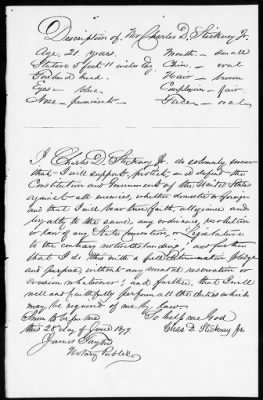 Description of Mr Charles D. Stickney Jr.
Age 21 years. Mouth – small
Stature 5 feet 11 inches Eng Chin – oval
Forehead Hair – brown
Eyes – blue. Complexion – fair.
Nose – prominent – Face – oval
I, Charles D. Stickney Jr. do solemnly swear
that I will support, protect, and defend the
Constitution and Government of the United States
against all enemies, whether domestic or foreign
and that I will bear true faith, allegiance and
loyalty to the same, any ordinance, resolution
or law of any State Convention, or Legislature
to the contrary notwithstanding; and further
that I do this with a full determination pledge
and purpose, without any mental reservation or
evasion whatsoever; and further, that I will
well and faithfully perform all the duties which
may be required of me by law.
Sworn to before me So help me God
this 28 day of June 1879 Chas D. Stickney Jr
James Taylor
Notary Public